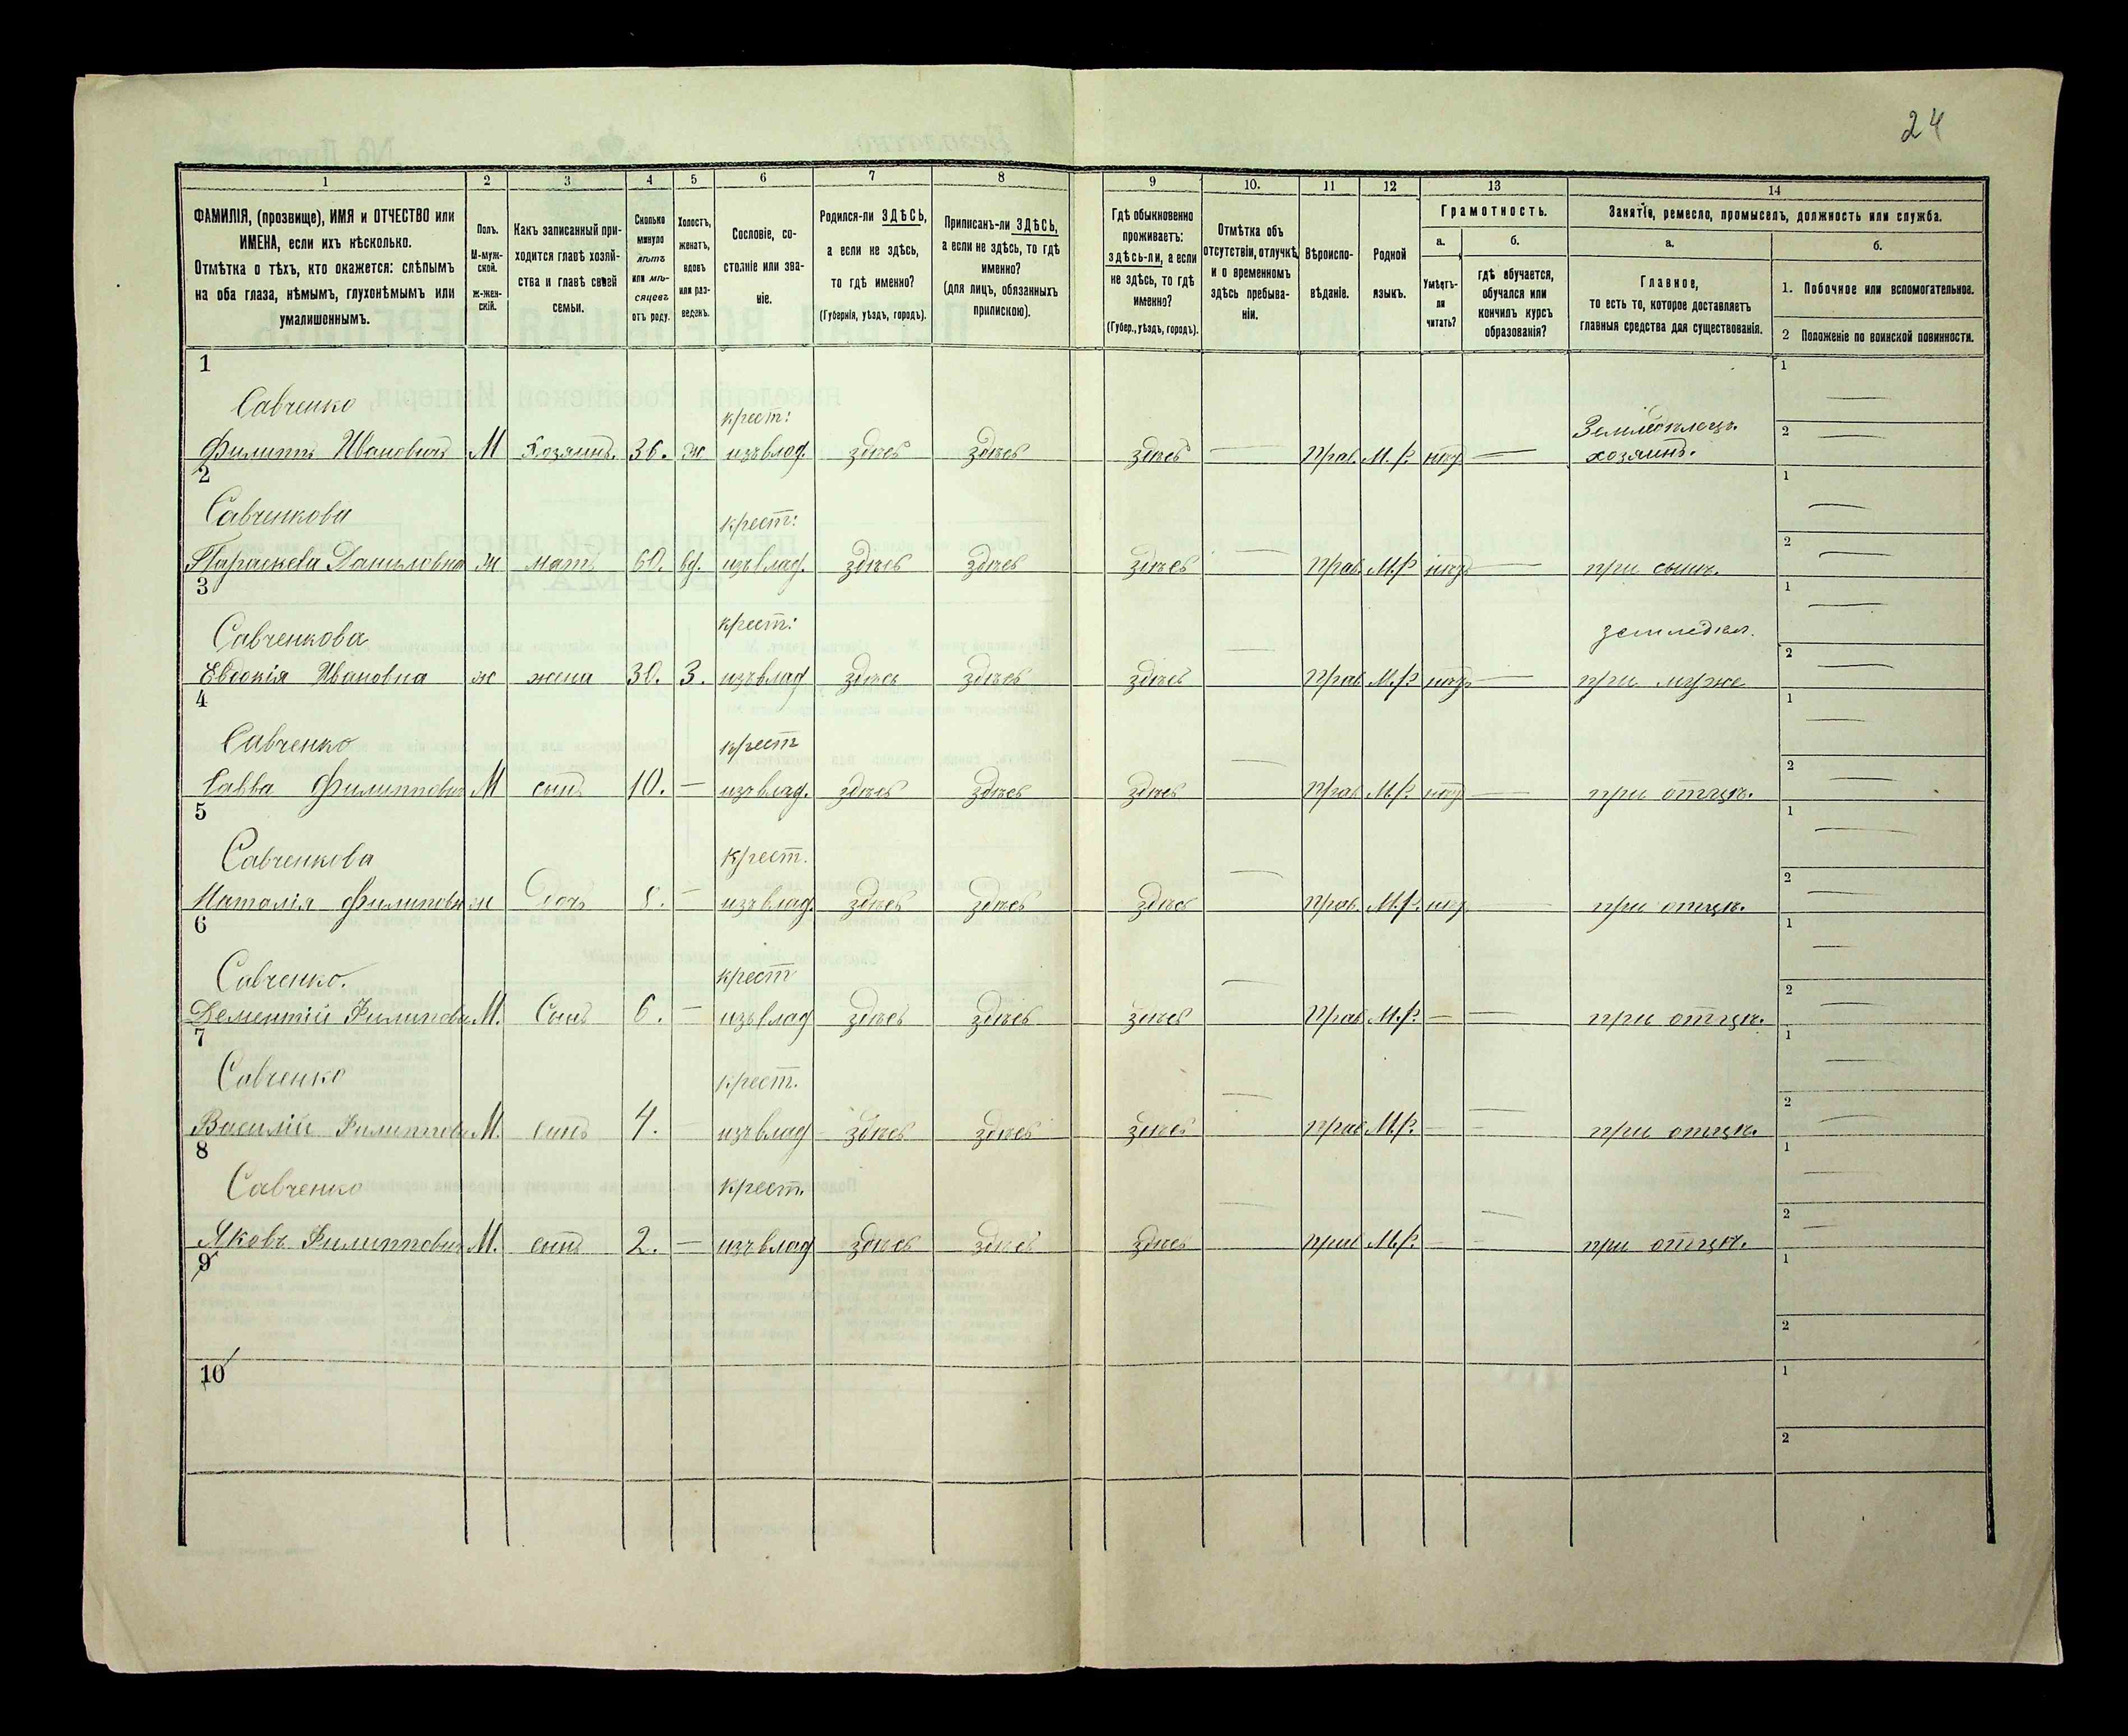 24
1 2 3 4 5 6 7 8 9 10. 11 12 13 14
ФАМИЛІЯ, (прозвище), ИМЯ и ОТЧЕСТВО или
ИМЕНА, если ихъ нѣсколько.
Отмѣтка о тѣхъ, кто окажется: слѣпымъ
на оба глаза, нѣмымъ, глухонѣмымъ или
умалишеннымъ.
Полъ.
М-муж-
ской.
Ж-жен-
скій.
Какъ записанный при-
ходится главѣ хозяй-
ства и главѣ своей
семьи.
Сколько
минуло
лѣтъ
или мѣ-
сяцевъ
отъ роду.
Холостъ,
женатъ,
вдовъ
или раз-
веденъ.
Сословіе, со-
стояніе или зва-
ніе.
Родился-ли ЗДѢСЬ,
а если не здѣсь,
то гдѣ именно?
(Губернія, уѣздъ, городъ).
Приписанъ-ли ЗДѢСЬ,
а если не здѣсь, то гдѣ
именно?
(для лицъ, обязанныхъ
припискою).
Гдѣ обыкновенно
проживаетъ:
здѣсь-ли, а если
не здѣсь, то гдѣ
именно?
(Губер., уѣздъ, городъ).
Отмѣтка объ
отсутствіи, отлучкѣ
и о временномъ
здѣсь пребыва-
ніи.
Вѣроиспо-
вѣданіе.
Родной
языкъ.
Грамотность.
а.
Умѣетъ-
ли
читать?
б.
гдѣ обучается,
обучался или
кончилъ курсъ
образованія?
Занятіе, ремесло, промыселъ, должность или служба.
а.
Главное,
то есть то, которое доставляетъ
главныя средства для существованія.
б.
1. Побочное или вспомогательное.
2 Положеніе по воинской повинности.
1 1
Савченко крест: Земледѣлецъ. 2
Филиппъ Ивановичъ М Хозяинъ. 36. ж изъ влад. здѣсь здѣсь здѣсь — Прав. М.Р. нѣт — хозяинъ.
2 1
Савченкова крест: 2
Параскева Даниловна ж мать 60. вд. изъ влад. здѣсь здѣсь здѣсь — Прав. М.Р нѣт — при сынѣ.
3 1
Савченкова крест: земледѣл. 2
Евдокія Ивановна ж жена 30. З. изъ влад здѣсь здѣсь здѣсь — Прав М.Р нѣт — при муже
4 1
Савченко крест 2
Савва Филиппович М сынъ 10. — изъ влад. здѣсь здѣсь здѣсь — Прав М.Р. нѣт — при отцѣ.
5 1
Савченкова крест. 2
Наталія Филипови ж Дочь 8. — изъ влад. здѣсь здѣсь здѣсь — Прав. М.Р. нѣт — при отцѣ.
6 1
Савченко. крест 2
Дементій Филипови М. Сынъ 6. — изъ влад здѣсь здѣсь здѣсь — Прав М.Р. — — при отцѣ.
7 1
Савченко крест. 2
Василій Филиппови М. сынъ 4. изъ влад здѣсь здѣсь здѣсь — прав М.Р. — — при отцѣ.
8 1
Савченко крест. 2
Яковъ Филиппович М. сынъ 2. — изъ влад здѣсь здѣсь здѣсь — прав М.Р. — — при отцѣ.
9 1
2
10 1
2